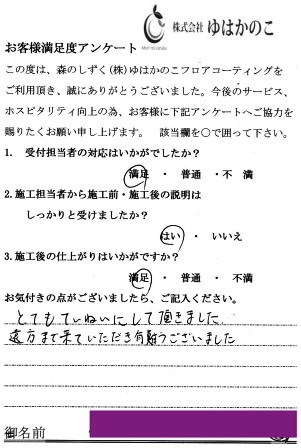 株式会社 ゆはかのこ
お客様満足度アンケート
この度は、森のしずく(株)ゆはかのこフロアコーティングを
ご利用頂き、誠にありがとうございました。今後のサービス、
ホスピタリティ向上の為、お客様に下記アンケートへご協力を
賜りたくお願い申し上げます。 該当欄を○で囲って下さい。
1. 受付担当者の対応はいかがでしたか?
満足 ・ 普通 ・ 不満
2.施工担当者から施工前・施工後の説明は
しっかりと受けましたか?
はい ・ いいえ
3.施工後の仕上がりはいかがですか?
満足 ・ 普通 ・ 不満
お気付きの点がございましたら、ご記入ください。
とてもていねいにして頂きました
遠方まで来ていただき有難うございました
御名前